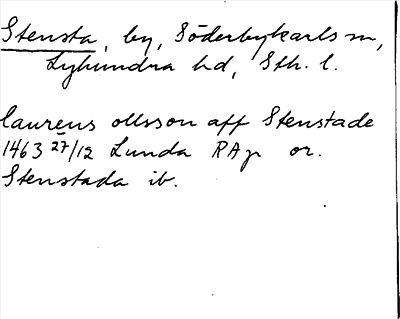 Stensta, by, Söderbykarls sn,
Lyhundra hd, Sth. l.
laurens olsson aff Stenstade
1463 27/12 Lunda RAp or.
Stenstada ib.